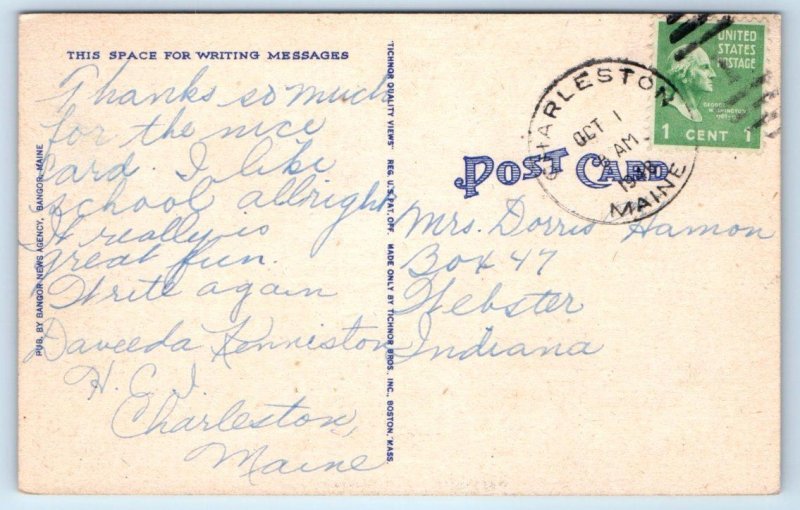 THIS SPACE FOR WRITING MESSAGES
Thanks so much
for the nice
card. I like
school allright
It really is
great fun.
Write again
Daveeda Kenniston
H. C. I.
Charleston,
Maine
PUB. BY BANGOR NEWS AGENCY, BANGOR, MAINE
"TICHNOR QUALITY VIEWS" REG. U.S. PAT. OFF. MADE ONLY BY TICHNOR BROS. INC., BOSTON, MASS.
POST CARD
CHARLESTON
OCT 1
AM
MAINE
UNITED
STATES
POSTAGE
GEORGE
WASHINGTON
1 CENT 1
Mrs. Dorris Hamon
Box 47
Webster
Indiana